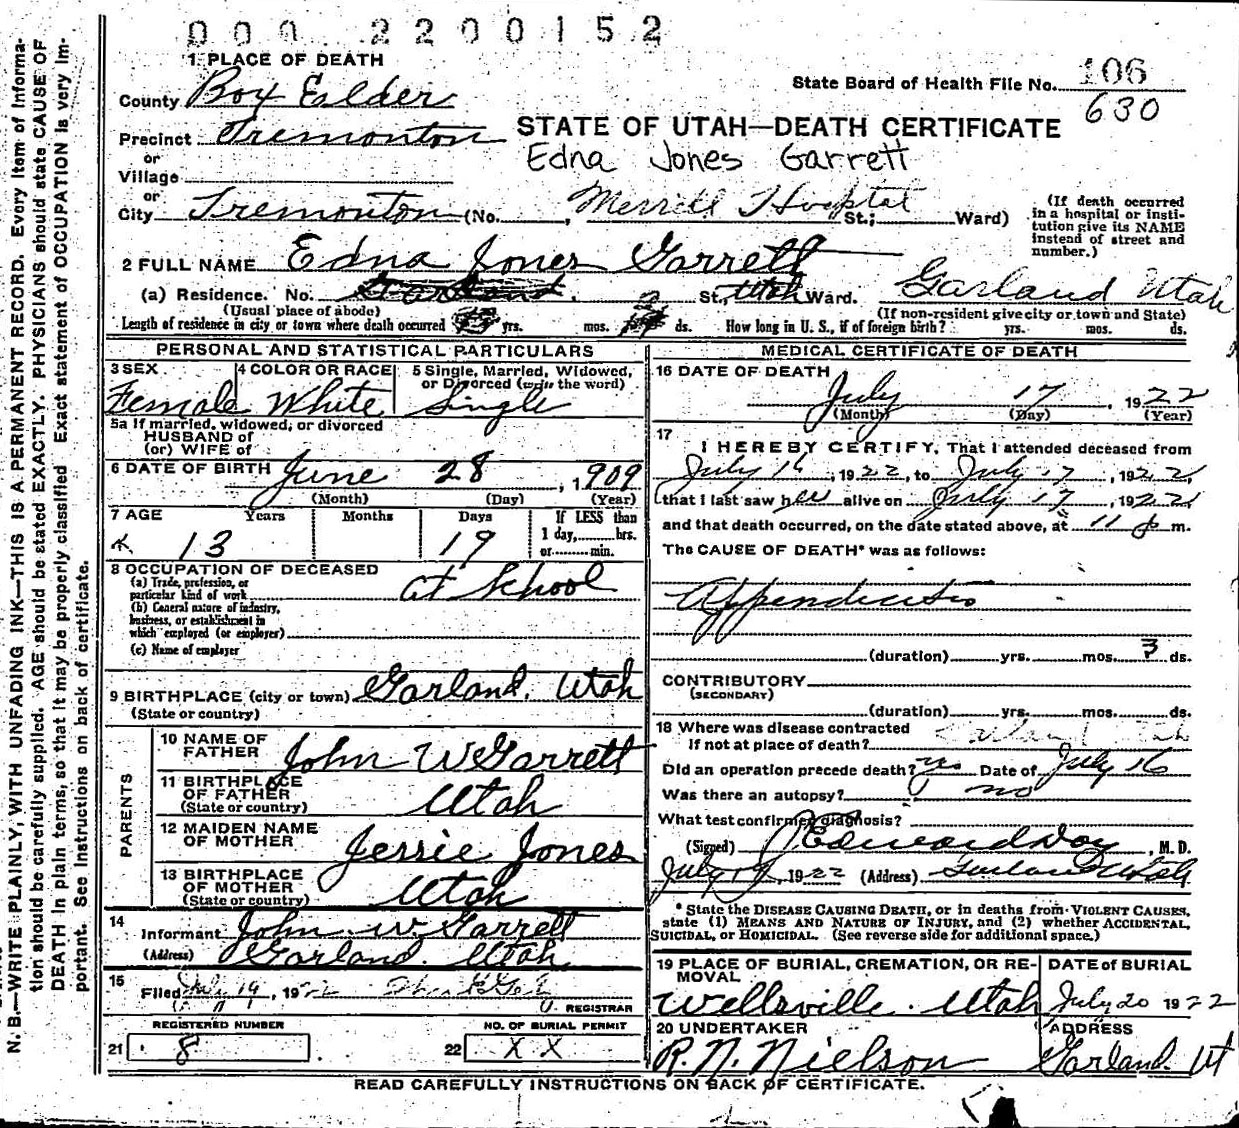 000 2200152
1 PLACE OF DEATH
State Board of Health File No. 106
630
County Box Elder
Precinct Tremonton
STATE OF UTAH—DEATH CERTIFICATE
Edna Jones Garrett
or
Village
or
City Tremonton (No. , Merrill Hospital St.; Ward)
(If death occurred in a hospital or insti-
tution give its NAME
instead of street and
number.)
2 FULL NAME Edna Jones Garrett
(a) Residence. No. St., Utah Ward. Garland Utah
(Usual place of abode) (If non-resident give city or town and State)
Length of residence in city or town where death occurred yrs. mos. ds. How long in U. S., if of foreign birth? yrs. mos. ds.
PERSONAL AND STATISTICAL PARTICULARS
3 SEX 4 COLOR OR RACE 5 Single, Married, Widowed, or Divorced (write the word)
Female White Single
5a If married, widowed, or divorced
HUSBAND of
(or) WIFE of
6 DATE OF BIRTH June 28, 1909
(Month) (Day) (Year)
7 AGE Years Months Days If LESS than
1 day, hrs.
or min.
13 19
8 OCCUPATION OF DECEASED
(a) Trade, profession, or
particular kind of work at School
(b) General nature of industry,
business, or establishment in
which employed (or employer)
(c) Name of employer
9 BIRTHPLACE (city or town) Garland. Utah
(State or country)
PARENTS
10 NAME OF
FATHER John W Garrett
11 BIRTHPLACE
OF FATHER
(State or country) Utah
12 MAIDEN NAME
OF MOTHER Jessie Jones
13 BIRTHPLACE
OF MOTHER
(State or country) Utah
14
Informant John W Garrett
(Address) Garland. Utah
15
Filed July 19, 1922
REGISTRAR
REGISTERED NUMBER NO. OF BURIAL PERMIT
21 8 22 X X
MEDICAL CERTIFICATE OF DEATH
16 DATE OF DEATH
July 17, 1922
(Month) (Day) (Year)
17
I HEREBY CERTIFY, That I attended deceased from
July 16, 1922, to July 17, 1922,
that I last saw her alive on July 17, 1922,
and that death occurred, on the date stated above, at 11 p m.
The CAUSE OF DEATH* was as follows:
Appendicitis
(duration) yrs. mos. 3 ds.
CONTRIBUTORY
(SECONDARY)
(duration) yrs. mos. ds.
18 Where was disease contracted
if not at place of death? Garland Utah
Did an operation precede death? yes Date of July 16
Was there an autopsy? no
What test confirmed diagnosis?
(Signed) , M. D.
July 19, 1922 (Address) Garland Utah
* State the DISEASE CAUSING DEATH, or in deaths from VIOLENT CAUSES,
state (1) MEANS AND NATURE OF INJURY, and (2) whether ACCIDENTAL,
SUICIDAL, or HOMICIDAL. (See reverse side for additional space.)
19 PLACE OF BURIAL, CREMATION, OR RE-
MOVAL DATE of BURIAL
Wellsville. Utah July 20 1922
20 UNDERTAKER ADDRESS
R. N. Nielson Garland. Ut
READ CAREFULLY INSTRUCTIONS ON BACK OF CERTIFICATE.
N. B.—WRITE PLAINLY, WITH UNFADING INK—THIS IS A PERMANENT RECORD. Every item of informa-
tion should be carefully supplied. AGE should be stated EXACTLY. PHYSICIANS should state CAUSE OF
DEATH in plain terms, so that it may be properly classified. Exact statement of OCCUPATION is very im-
portant. See instructions on back of certificate.